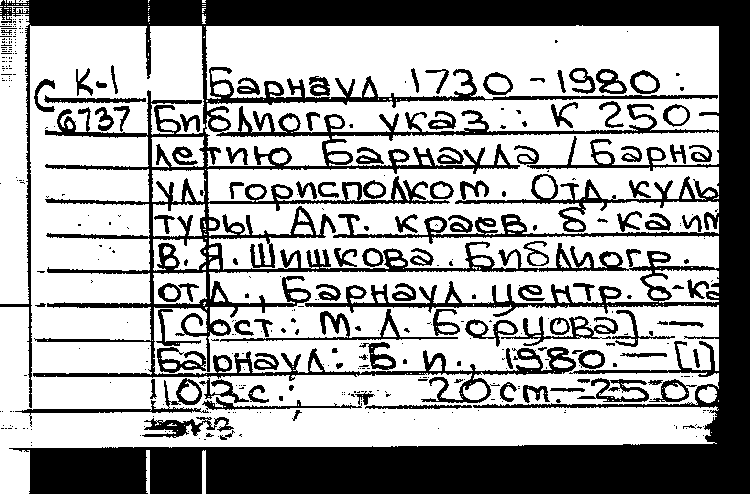 К-1 Барнаул, 1730-1980:
С 6737 Библиогр. указ.: К 250-
летию Барнаула / Барна
ул. горисполком. Отд. куль
туры, Алт. краев. б-ка им
В. Я. Шишкова. Библиогр.
отд., Барнаул. центр. б-ка
[Сост.: М. Л. Борцова]. —
Барнаул: Б. и., 1980. — [1]
103 с.; 20 см. — 2500